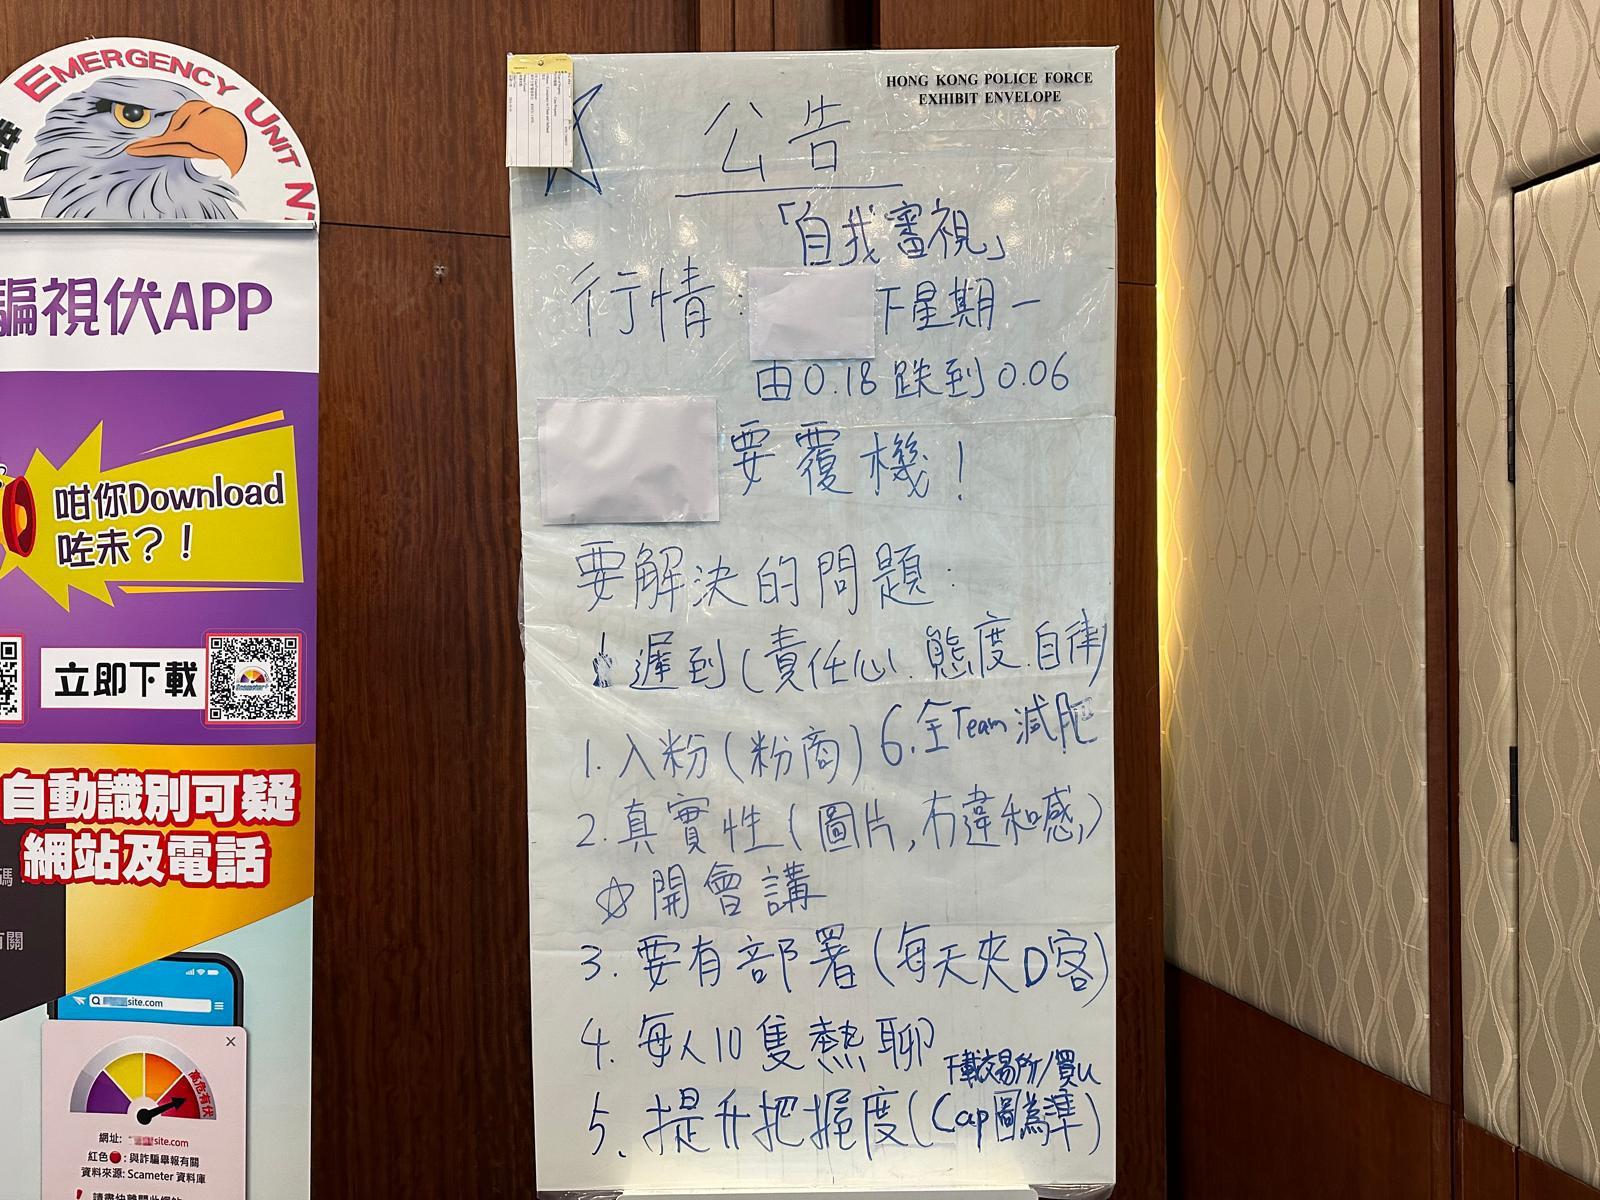 EMERGENCY UNIT NT
騙視伏APP
咁你Download
咗未？！
立即下載
自動識別可疑
網站及電話
碼
有關
site.com
高危有伏
網址: site.com
紅色：與詐騙舉報有關
資料來源: Scameter 資料庫
HONG KONG POLICE FORCE
EXHIBIT ENVELOPE
公告
「自我審視」
行情: 下星期一
由0.18跌到0.06
要覆機！
要解決的問題:
遲到(責任心.態度.自律)
1.入粉(粉商) 6.全Team減肥
2.真實性(圖片,冇違和感,)
☆開會講
3.要有部署(每天夾D客)
4.每人10隻熱聊
下載交易所/買U
5.提升把握度(Cap圖為準)